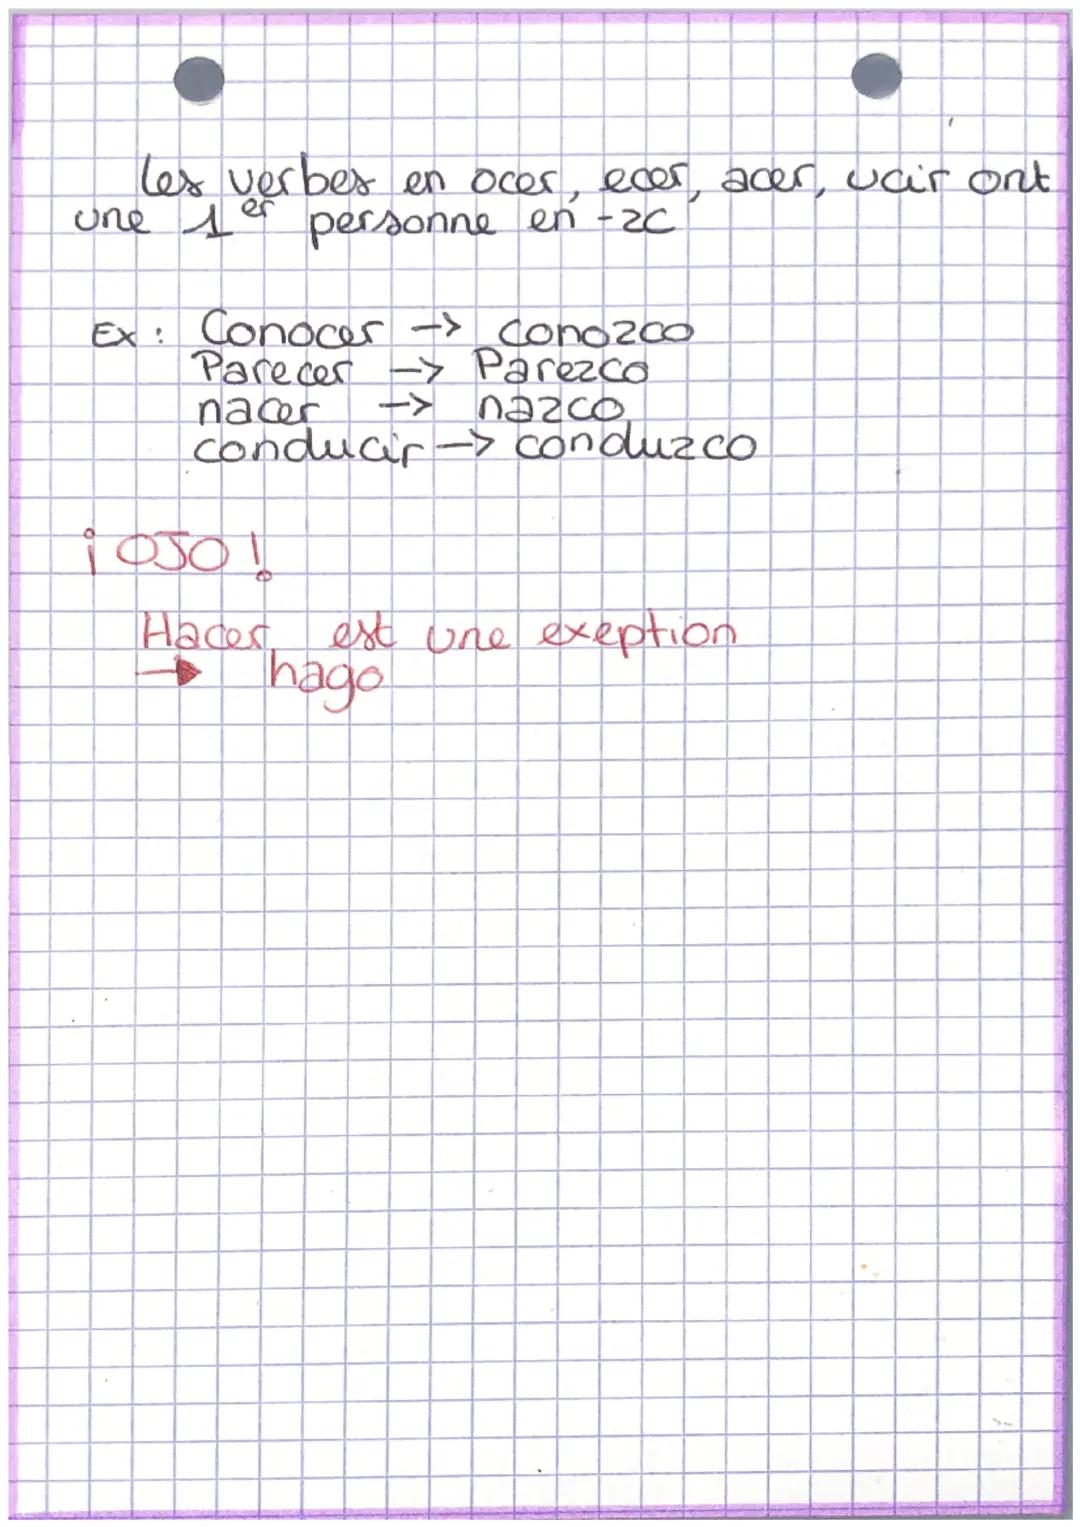 Les verbes en ocer, ecer, acer, ucir ont
une 1er personne en -zc
Ex : Conocer -> conozco
Parecer -> Parezco
nacer -> nazco
conducir -> conduzco
¡OJO!
Hacer, est une exeption
→ hago